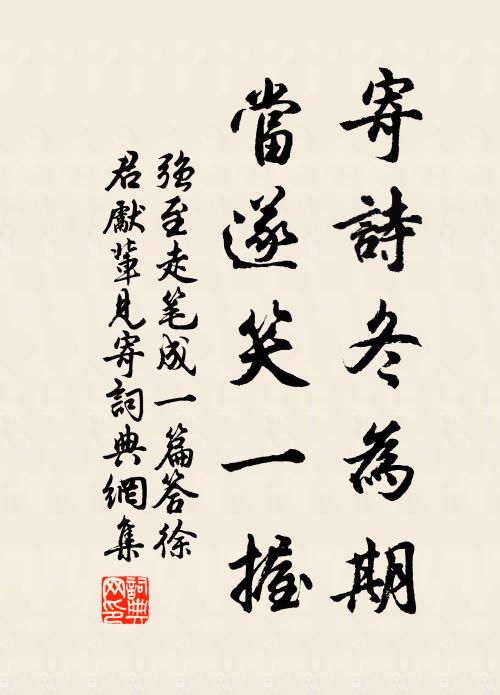 寄詩冬為期
當遂笑一握
強至走笔成一篇答徐
君獻輩見寄詞典網集
詞典网印